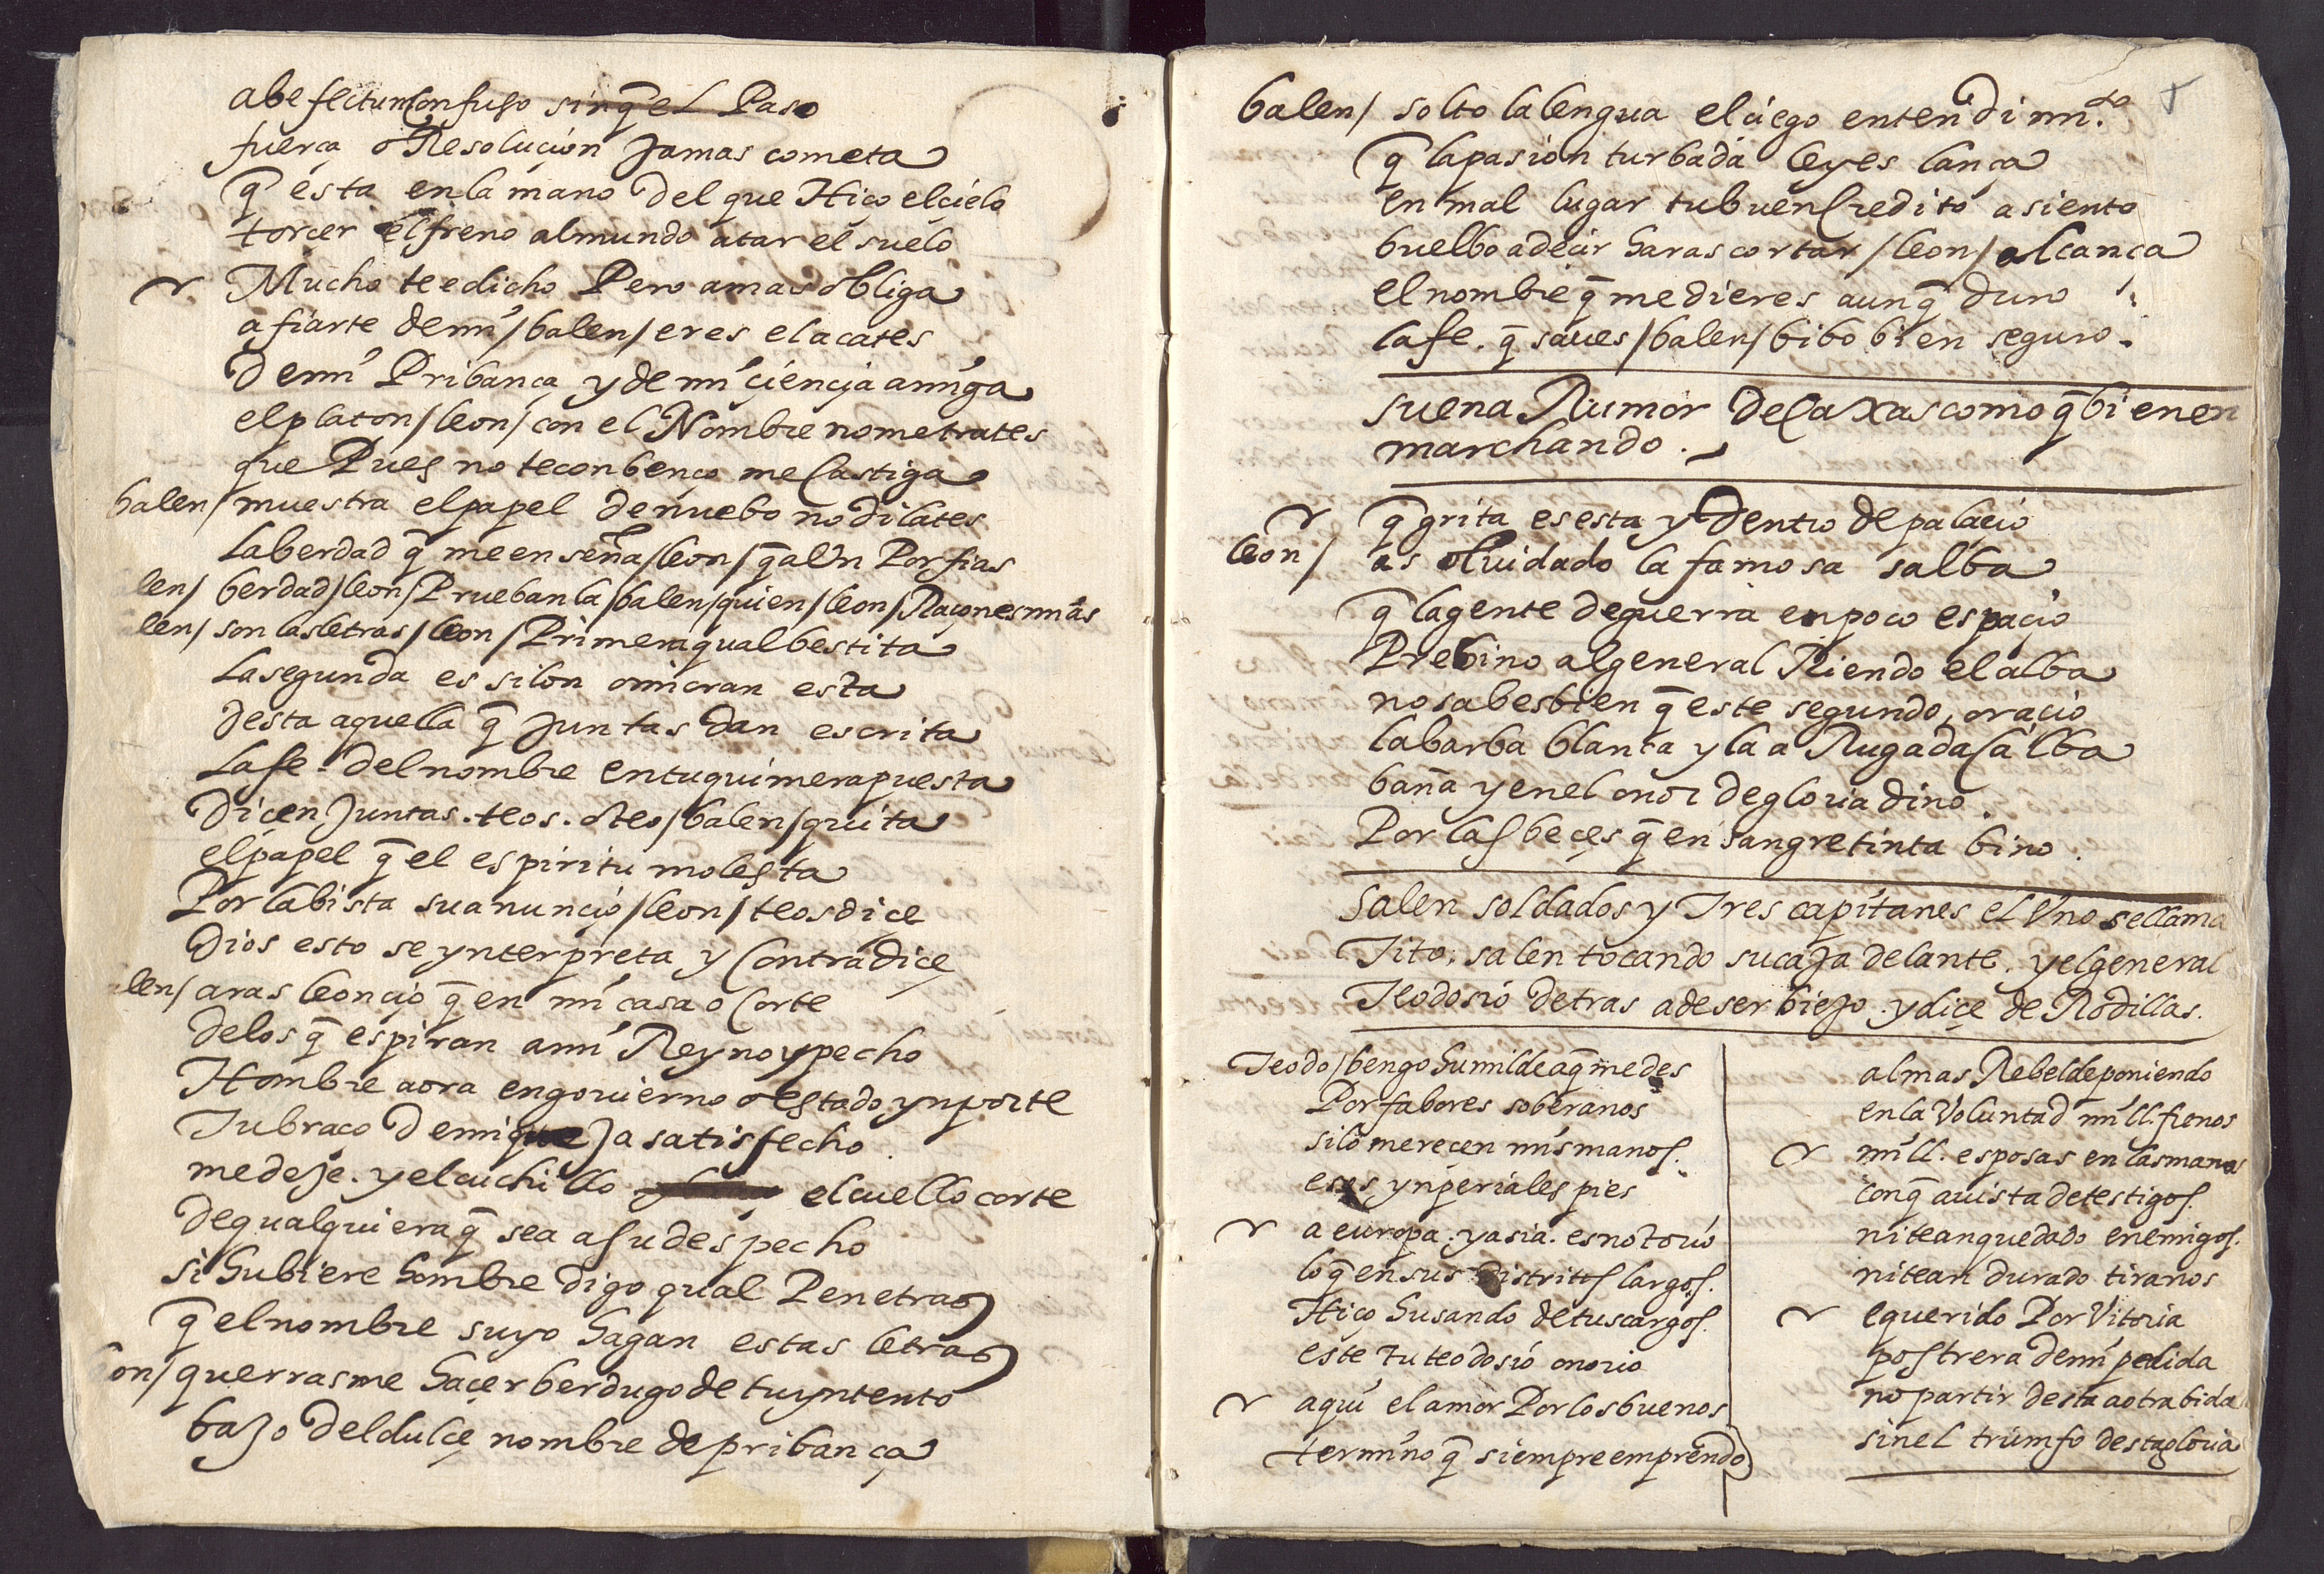 abe fectun Confuso sin q̃ el Paso
fuerça o Resoluçion Jamas cometa
q̃ esta en la mano Del que Hiço el cielo
torçer el freno al mundo atar el suelo
Mucho te e dicho Pero a mas obliga
a fiarte de mi / balen / eres el acates
De mi Pribança y de mi çiençia amiga
el platon / leon / con el Nombre no me trates
que Pues no te conbenço me Castiga
balen / muestra el papel de nuebo no dilates
La berdad q̃ me enseña / leon / q̃ al Un Porfias
len / berdad / leon / Prueban la / balen / quien / leon / Raçones mias
len / son las letras / leon / Primera qual bestita
La segunda es silon omicran esta
desta aquella q̃ Juntas dan escrita
La fe del nombre en tu quimera puesta
Diçen Juntas . teos . o teo / balen / quita
el papel q̃ el espiritu molesta
Por la bista su anunçio / leon / teos diçe
Dios esto se ynterpreta y Contradiçe
alen / aras leonçio q̃ en mi casa o Corte
de los q̃ espiran a mi Reyno y pecho
Hombre aora en gouierno o estado ynporte
Tu braço De mi que Ja satisfecho
me deJe . y el cuchillo el cuello corte
de qualquiera q̃ sea a su despecho
si hubiere hombre digo qual Penetras
q̃ el nombre suyo hagan estas letras
on / querrasme haçer berdugo de tu yntento
baJo Del dulçe nombre de pribança
balen / solto la lengua el çiego entendimi.to
q̃ la pasion turbada leyes lança
en mal lugar tu buen Credito asiento
buelbo a deçir haras cortar / leon / alcança
el nombre q̃ me dieres aunq̃ duro
la fe . q̃ saues / balen / bibo bien seguro .
suena Rumor De Caxas como q̃ bienen
marchando .
q̃ grita es esta y Dentro de palaçio
leon / as oluidado la famosa salba
q̃ la gente de guerra en poco espaçio
Prebino al general Riendo el alba
no sabes bien q̃ este segundo oraçio
la barba blanca y la a Rugada Calba
baña y en el onor de gloria dino
Por las beçes q̃ en sangre tinta bino .
Salen soldados y Tres capitanes el Uno se llama
Tito . salen tocando su caJa delante . y el general
Teodosio detras a de ser bieJo . y diçe de Rodillas .
Teodo / bengo humilde a q̃ me des
Por fabores soberanos
si lo mereçen mis manos .
esos ynperiales pies
a europa . y asia . es notorio
lo q̃ en sus distritos largos .
Hiço husando de tus cargos .
este tu teodosio onorio
aqui el amor Por los buenos
termino q̃ siempre emprendo
almas Rebelde poniendo
en la Voluntad mill frenos
mill . esposas en las manos
con q̃ a uista de testigos .
ni te an quedado enemigos .
ni te an durado tiranos
e querido Por Vitoria
postrera de mi pedida
no partir desta a otra bida
sin el triumfo desta gloria